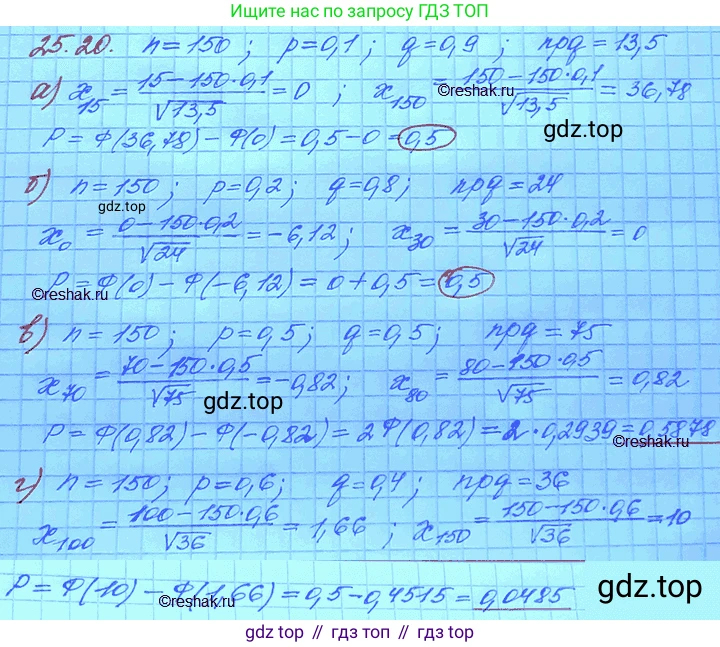 Ищите ГДЗ по запросу ГДЗ ТОП
25.20. n=150; p=0,1; q=0,9; npq=13,5
а) x₁₅ = (15-150·0,1)/√13,5 = 0; x₁₅₀ = (150-150·0,1)/√13,5 = 36,78
©reshak.ru
P = Ф(36,78) - Ф(0) = 0,5 - 0 = 0,5
gdz.top
б) n=150; p=0,2; q=0,8; npq=24
gdz.top
x₀ = (0-150·0,2)/√24 = -6,12; x₃₀ = (30-150·0,2)/√24 = 0
P = Ф(0) - Ф(-6,12) = 0 + 0,5 = 0,5
©reshak.ru
в) n=150; p=0,5; q=0,5; npq=75
x₇₀ = (70-150·0,5)/√75 = -0,82; x₈₀ = (80-150·0,5)/√75 = 0,82
gdz.top
P = Ф(0,82) - Ф(-0,82) = 2Ф(0,82) = 2·0,2939 = 0,5878
©reshak.ru
г) n=150; p=0,6; q=0,4; npq=36
x₁₀₀ = (100-150·0,6)/√36 = 1,66; x₁₅₀ = (150-150·0,6)/√36 = 10
P = Ф(10) - Ф(1,66) = 0,5 - 0,4515 = 0,0485
©reshak.ru
gdz.top
gdz top // гдз топ // gdz.top